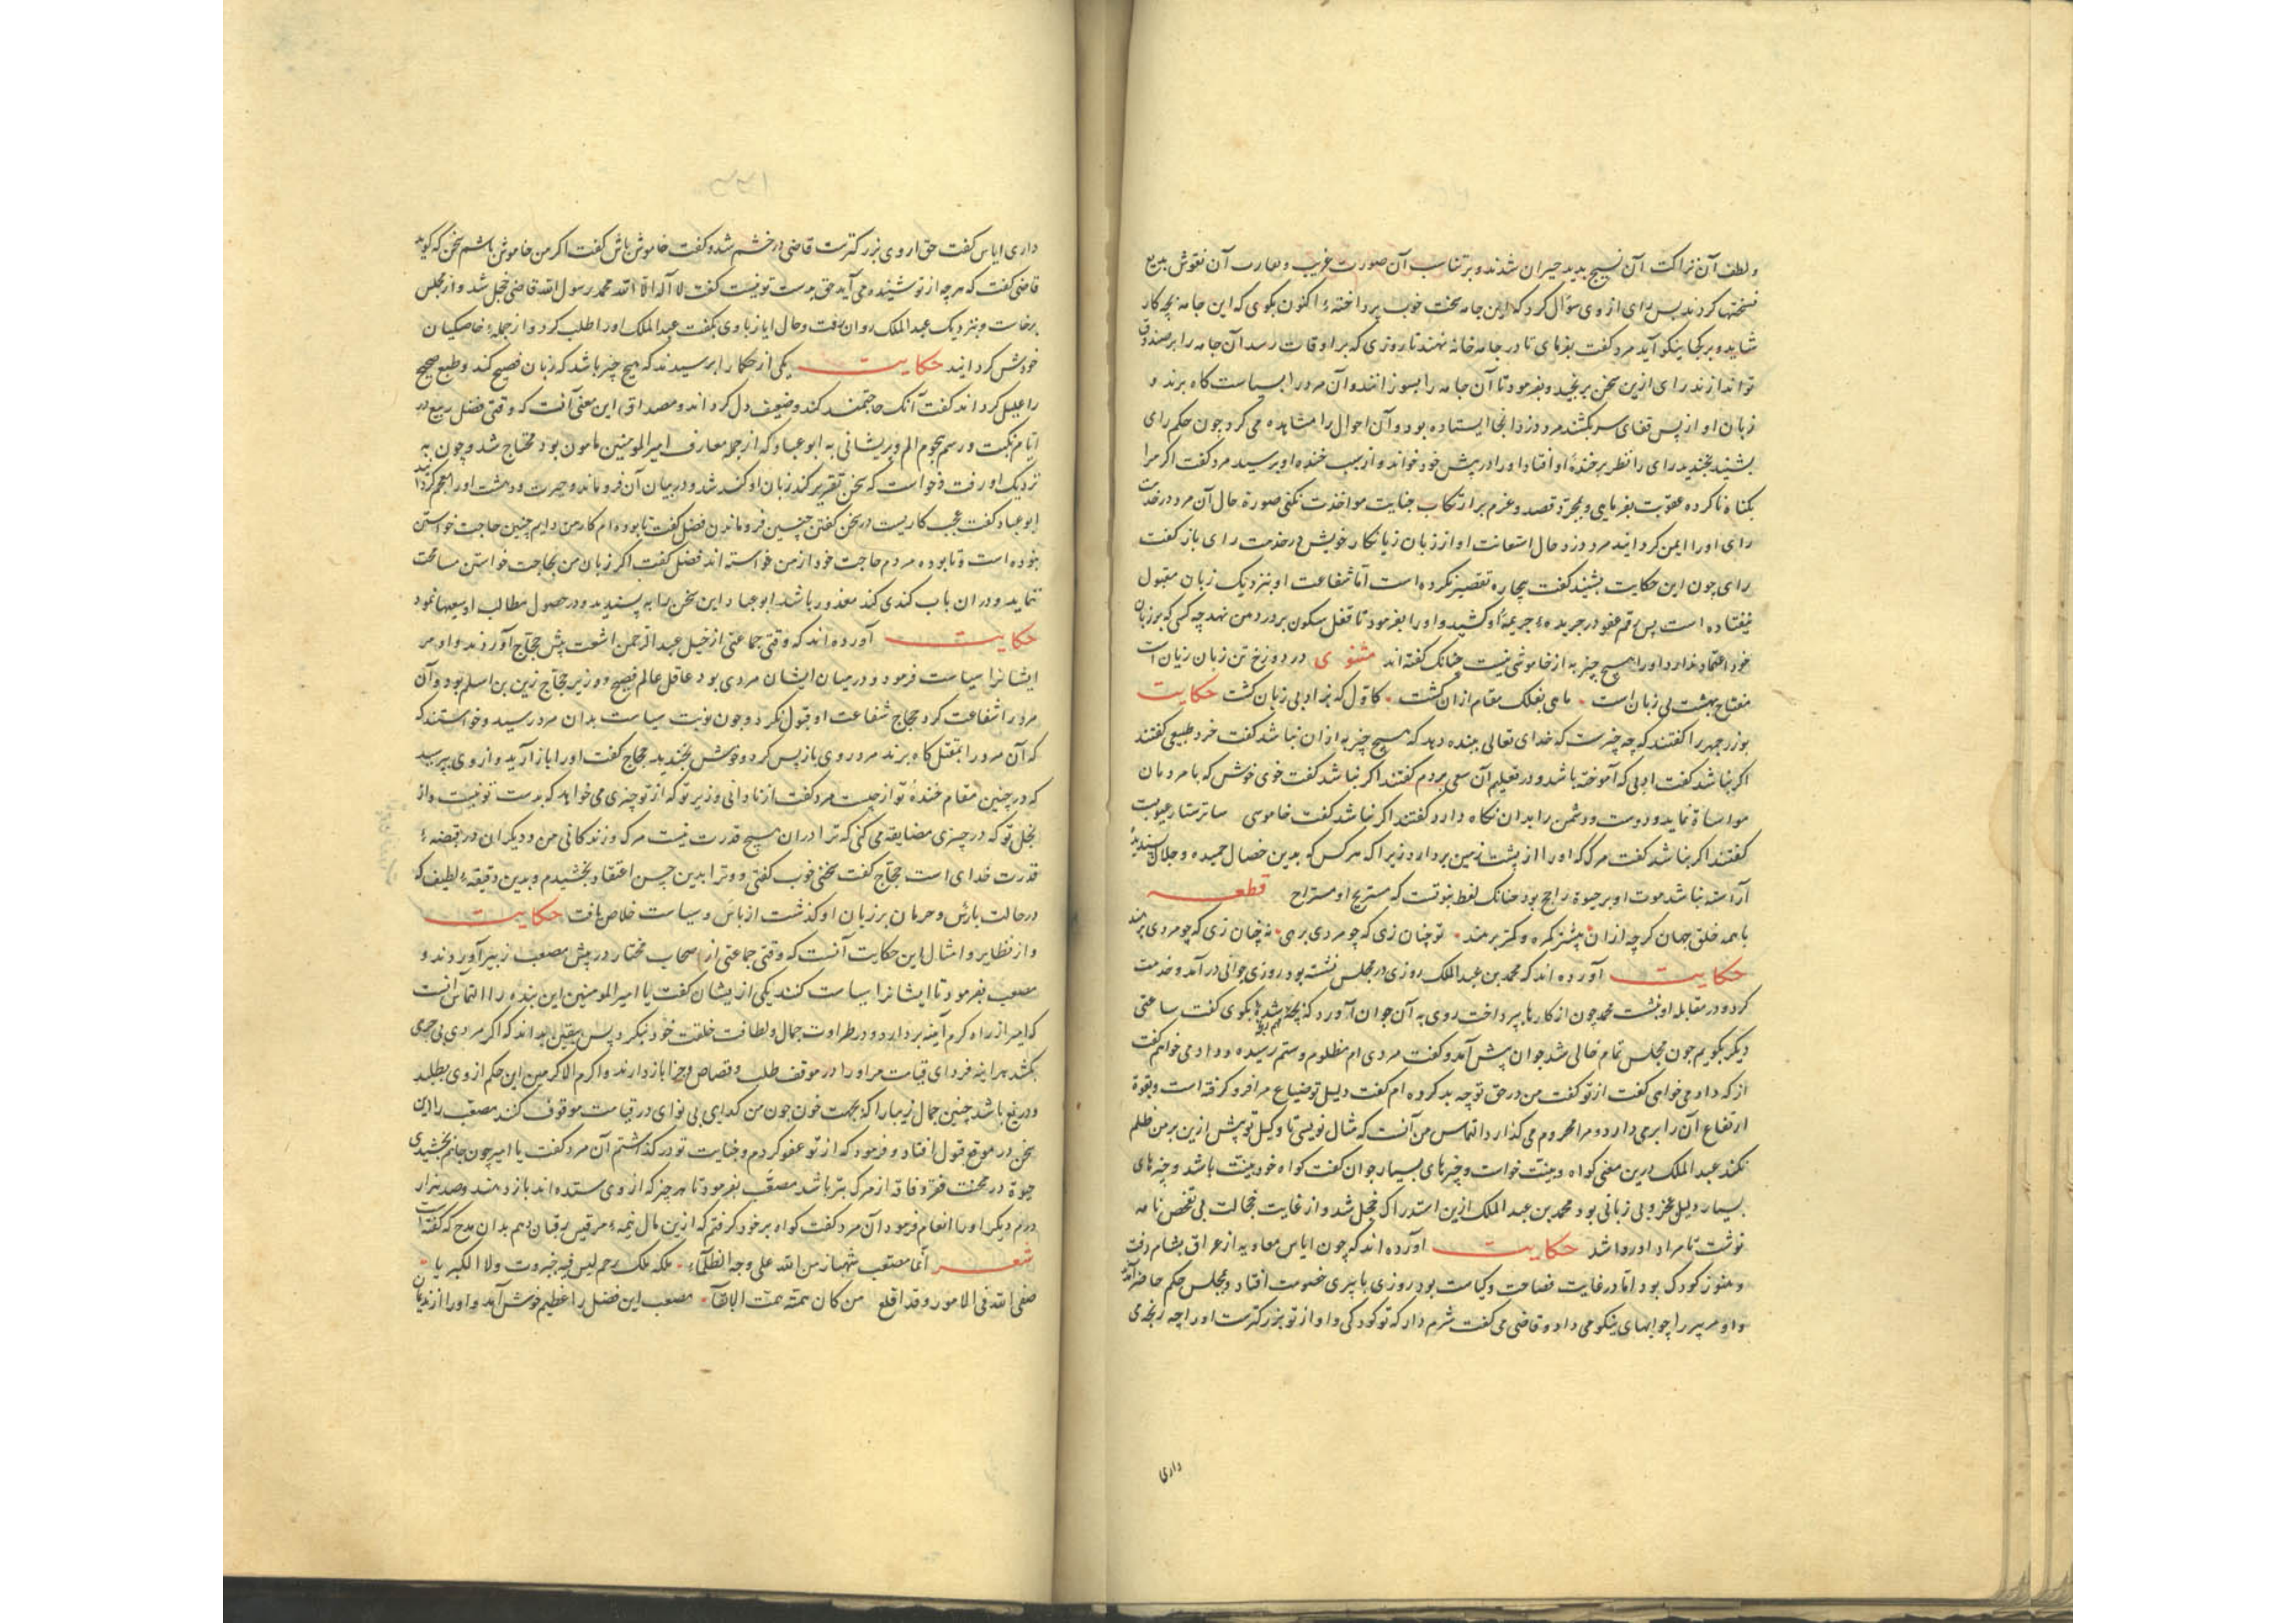 ولطف آن نزاکت آن نسیج بدید حیران شدند و بر تناسب آن صورت غریب و تعارب آن نقوش بدیع
نسختها کردند پس رای ازوی سؤال کرد که این جامه سخت خوب پرداختهٔ اکنون بکوی که این جامه بچه کار
شاید و بر کجا نیکو آید مرد کفت بفرمای تا در جامه خانه نهند تا روزی که برا وقات رسد آن جامه را بر صندوق
تو اندازند رای ازین سخن برنجید و بفرمود تا آن جامه را بسوزانند و آن مرد را بسیاست کاه برند و
زبان او از پس قفای سر بکشند مرد دزد آنجا ایستاده بود و آن احوال را مشاهده می کرد جون حکم رای
بشنید بخندید رای را نظر بر خندهٔ او افتاد او را در پیش خود خواند و از سبب خنده او پرسید مرد کفت اکر مرا
بکناه ناکرده عقوبت بفرمایی و بمجرّد قصد و عزم بر ارتکاب جنایت مواخذت نکنی صورة حال آن مرد در خدمت
رای او را ایمن کردانید مرد دزد حال استعانت او از زبان زیانکار خویش در خدمت رای باز کفت
رای چون این حکایت بشنید کفت بیچاره تقصیر نکرده است امّا شفاعت او بنزدیک زبان مقبول
نیفتاده است پس رقم عفو در جریدهٔ جریمهٔ او کشید و او را بفرمود تا قفل سکون بر در دمن نهد چه کسی که بر زبان
خود اعتماد ندارد او را هیچ چیز به از خاموشی نیست چنانک کفته اند مثنوی در دوزخ تن زبان زیان است
مفتاح بهشت بی زبان است ماهی بفلک مقام از ان کشت کاوّل که بزاد بی زبان کشت حکایت
بوزرجمهر را کفتند که چه چیزست که خدای تعالی ببنده دهد که هیچ چیز به از ان نباشد کفت خرد طبیعی کفتند
اکر نباشد کفت ادبی که آموخته باشد و در تعلیم آن سعی بردم کفتند اکر نباشد کفت خوی خوش که با مردمان
مواساة نماید و دوست و دشمن را بدان نکاه دارد کفتند اکر نباشد کفت خاموسی ساتر ستار عیوبت
کفتند اکر نباشد کفت مرک که او را از پشت زمین بردارد زیرا که هر کس که بدین خصال حمیده و جلال پسندیدهٔ
آراسته نباشد موت او بر حیوة راجح بود چنانک لفظ نبوتست که مستریح او مستراح قطعه
با همه خلق جهان کرچه از ان بیشتر کمره و کمتر برهند تو چنان زی که چو مردی برهی نه چنان زی که چو مردی برهند
حکایت آورده اند که محمد بن عبد الملک روزی در مجلس نشسته بود روزی جوانی در آمد و خدمت
کرد و در مقابله او بنشست محمد چون از کارها بپرداخت روی به آن جوان آورد که بکوی کفت ساعتی
دیکر بکویم جون مجلس تمام خالی شد جوان پیش آمد و کفت مردی ام مظلوم و ستم رسیده و داد می خواهم کفت
از که داد می خواهی کفت از تو کفت من در حق تو چه بد کرده ام کفت وکیل تو ضیاع مرا فرو کرفته است و بقوة
ارتفاع آن را برمی دارد و مرا محروم می کذارد التماس من آنست که مثال نویسی تا وکیل تو پیش ازین بر من ظلم
نکند عبد الملک درین معنی کواه و بینّت خواست و چیزهای بسیار جوان کفت کواه خود بینّت باشد و چیزهای
بسیار دلیل عجز و بی زبانی بود محمد بن عبد الملک ازین استدراک خجل شد و از غایت خجالت بی تفحص نامه
نوشت تا مراد او روا شد حکایت آورده اند که چون ایاس معاویه از عراق بشام رفت
و هنوز کودک بود امّا در غایت فصاحت و کیاست بود روزی با پیری خصومت افتاد و بمجلس حکم حاضر آمدند
و او مر پیر را جوابهای نیکو می داد و قاضی می کفت شرم دار که تو کودکی و او از تو بزرکترست او را چه رنجه می
داری
داری ایاس کفت حق از وی بزرکترست قاضی در خشم شد و کفت خاموش باش کفت اکر من خاموش باشم سخن که کوید
قاضی کفت که هر چه از تو شنیده می آید حق بدست تو نیست کفت لا اله الّا الله محمد رسول الله قاضی خجل شد و از مجلس
برخاست و بنزدیک عبد الملک روان رفت و حال ایاز با وی بکفت عبد الملک او را طلب کرد و از جملهٔ خاصیکیان
خودش کردانید حکایت یکی از حکما را پرسیدند که هیچ چیز باشد که زبان فصیح کند و طبع صحیح
را علیل کرداند کفت آنک حاجتمند کند و ضعیف دل کرداند و مصداق این معنی آنست که وقتی فضل ربیع در
ایّام نکبت و رسم هجوم الم و پریشانی به ابو عباد که از جمله معارف امیر المومنین مامون بود محتاج شد و چون به
نزدیک او رفت و خواست که سخن تقریر کند زبان او کند شد و در بیان آن فرو ماند و حیرت و دهشت او را
ابو عباد کفت عجب کاریست در سخن کفتن چنین فرو ماندن فضل کفت تا بوده ام کار من دایم چنین حاجت خواستن
نبوده است و تا بوده مردم حاجت خود از من خواسته اند فضل کفت اکر زبان من بحاجت خواستن مسامحت
ننماید و در ان باب کندی کند معذور باشد ابو عباد این سخن را به پسندید و در حصول مطالب او سعیها نمود
حکایت آورده اند که وقتی جماعتی از خیل عبد الرحمن اشعث پیش حجّاج آوردند و او مر
ایشانرا سیاست فرمود و در میان ایشان مردی بود عاقل عالم فصیح و وزیر حجّاج زین بن اسلم بود و آن
مرد را شفاعت کرد حجاج شفاعت او قبول نکرد و جون نوبت سیاست بدان مرد رسید و خواستند که
که آن مرد را بمقتل کاه برند مرد روی باز پس کرد و خوش بخندید حجّاج کفت او را باز آرید و از وی پرسید
که در چنین مقام خندهٔ تو از چیست مرد کفت از نادانی وزیر تو که از تو چیزی می خواهد که بدست تو نیست و از
بخل تو که در چیزی مضایقه می کنی که ترا در ان هیچ قدرت نیست مرک و زندکانی من و دیکران در قبضهٔ
قدرت خدای است حجّاج کفت سخنی خوب کفتی و ترا بدین حسن اعتقاد بخشیدم و بدین دقیقهٔ لطیف که
در حالت باس و حرمان بر زبان او کذشت از باس و سیاست خلاص یافت حکایت
و از نظایر و امثال این حکایت آنست که وقتی جماعتی از اصحاب مختار در پیش مصعب زبیر آوردند و
مصعب بفرمود تا ایشانرا سیاست کنند یکی از یشان کفت یا امیر المومنین این بنده را التماس آنست
که امیر از راه کرم آینه بردارد و در طراوت جمال و لطافت خلقت خود نیکرد پس بیقین بداند که اکر مردی بی جرمی
بکشد هر اینه فردای قیامت مر او را در موقف طلب و قصاص و جزا باز دارند و اکرم الاکرمین این حکم از وی بطلبد
و دریغ باشد چنین جمال زیبا را که بجهت خون جون من کدای بی نوای در قیامت موقوف کنند مصعب را این
سخن در موقع قبول افتاد و فرمود که از تو عفو کردم و جنایت تو در کذاشتم آن مرد کفت یا امیر چون جانم بخشیدی
حیوة در محنت فقر و فاقه از مرک بتر باشد مصعب بفرمود تا هر چیز که از وی ستده اند باز دهند و صد هزار
درم دیکر او را انعام فرمود آن مرد کفت کواه بر خود کرفتم که ازین مال نیمهٔ مر قیس رقیات دهم بدان مدح که کفته است
شعر انّما مصعب شهاب من الله علی وجه الظلماء ملکه ملک رحم لیس فیه جبروت ولا الکبریا
صفی الله فی الامور وقد افلح من کان همّته همّت الاتقآ مصعب این فضل را عظیم خوش آمد و او را از ندیمان